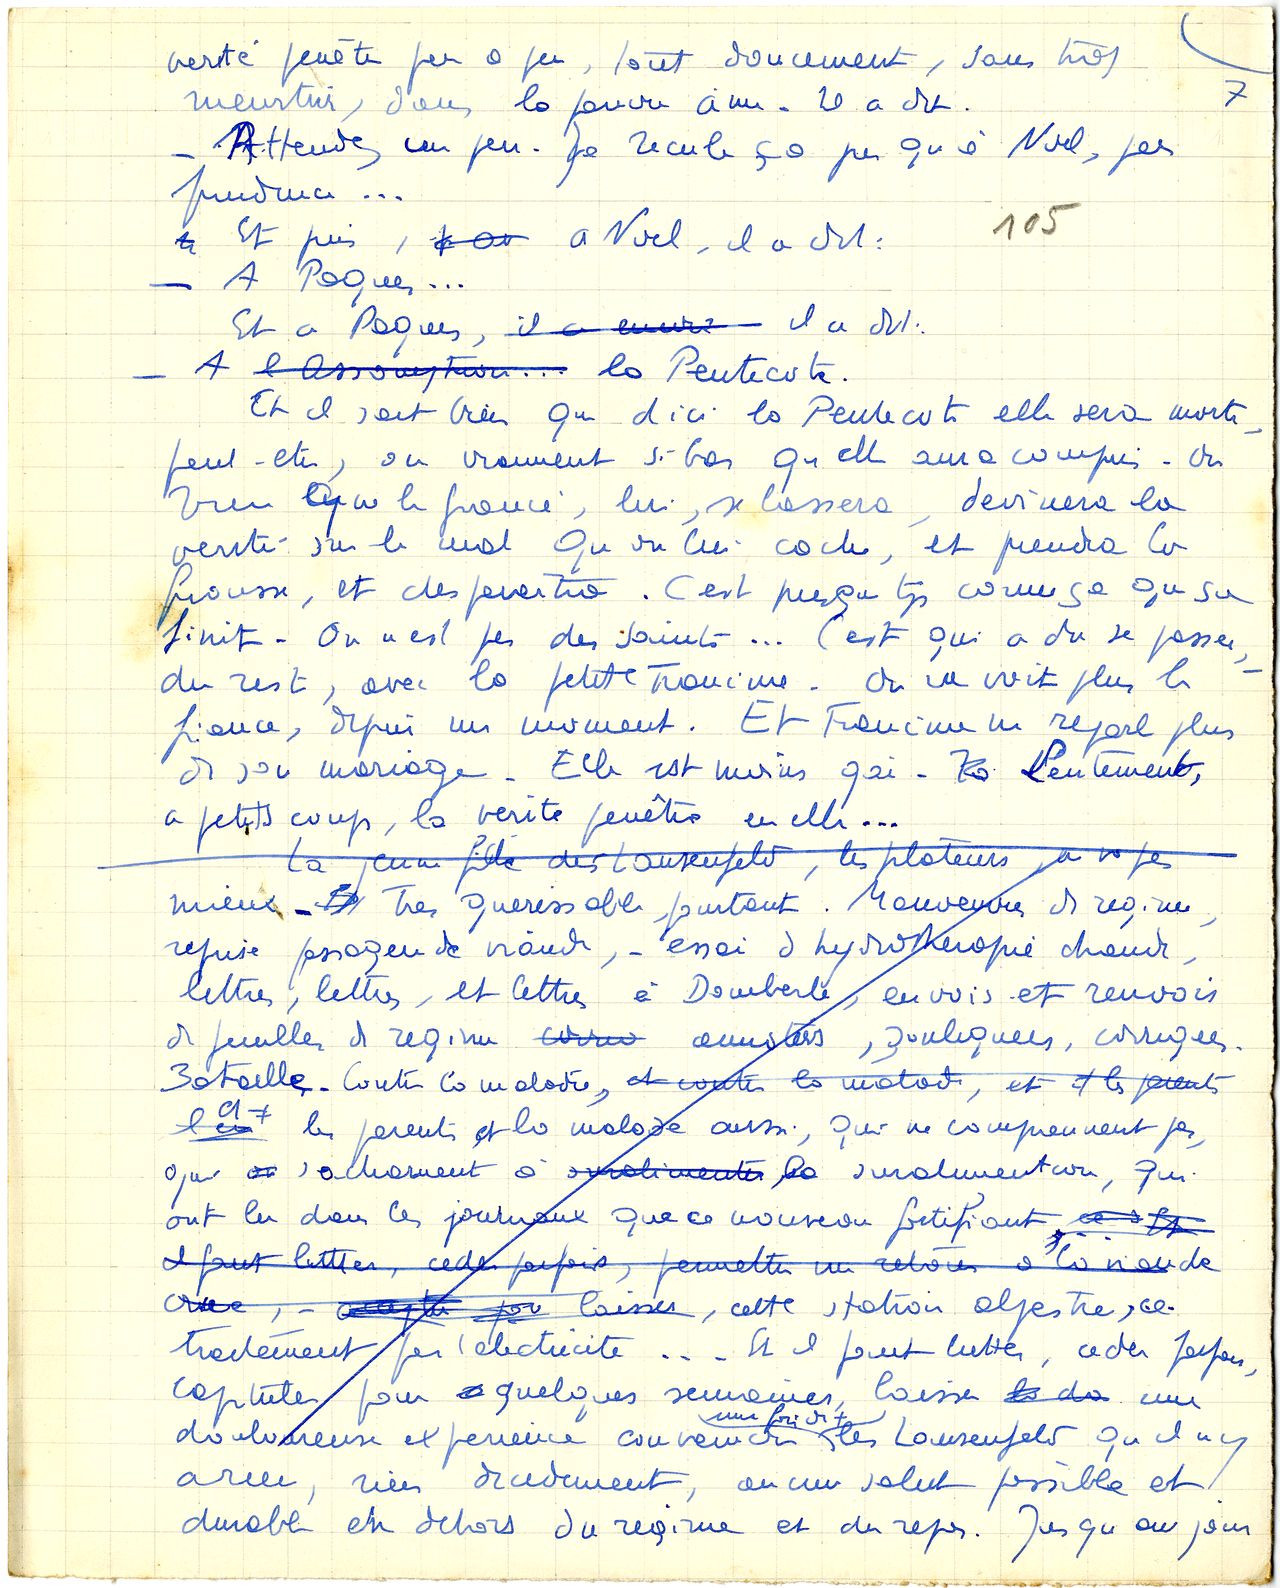 verité penêtre peu a peu, tout doucement, sans trop
7
meurtrir, dans la pauvre âme. Il a dit.
- Attendez un peu. Je recule ça jusqu'à Noel, par
prudence ...
105
Et puis, a Noel, il a dit:
- A Paques...
Et a Paques, il a encore il a dit:
- A l Assomption... la Pentecote.
Et il sait bien que d ici la Pentecote elle sera morte,
peut-etre, ou vraiment si bas qu elle aura compris. Ou
bien que le fiancé, lui, se lassera, devinera la
verité sur le mal qu on lui cache, et prendra la
frousse, et disparaitra. C est presque tjs comme ça que ça
finit. On n est pas des saints... C est qui a du se passer,
du reste, avec la petite Francine. On ne voit plus le
fiance, depuis un moment. Et Francine ne reparle plus
de son mariage. Elle est moins gaie. Lentement,
a petits coups, la verité penêtre en elle...
La jeune fille des Lausenfeld, les plateurs ça va pas
mieux - Tres guerissable pourtant. Manoeuvres de regime,
reprise passagere de viande, - essai d hydrothérapie chaude,
lettres, lettres, et lettres à Domberlé, envois et renvois
de feuilles de regime annotées, soulignees, corrigees.
Bataille. Contre la maladie, et contre la malade, et les parents
les parents et la malade aussi, qui ne comprennent pas,
qui s acharnent à suralimenter la suralimentation, qui
ont lu dans les journaux que ce nouveau fortifiant
il faut lutter, ceder parfois, permettre un retour à la viande
crue, - laisser, cette station alpestre, ce
traitement par l electricité .... Et il faut lutter, ceder parfois,
capituler pour quelques semaines, laisser une
une fois de +
douloureuse experience convaincre les Lausenfeld qu il n y
a rien, rien decidement, aucun salut possible et
durable en dehors du regime et du repos. Jusqu au jour